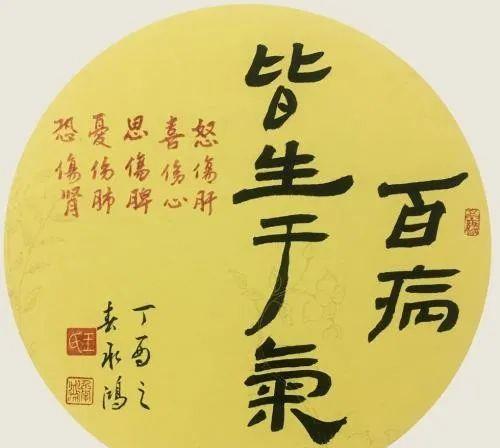 百病
皆生于氣
怒傷肝
喜傷心
思傷脾
憂傷肺
恐傷腎
丁酉之
春承鴻
王氏